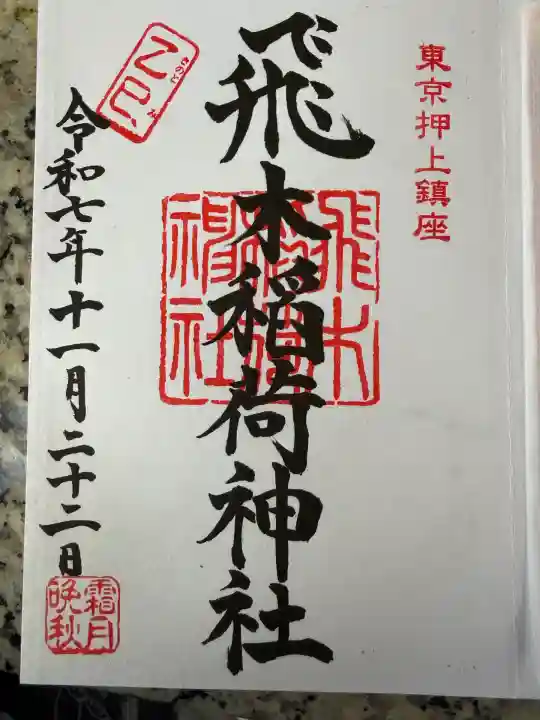 東京押上鎮座
飛木稲荷神社
飛木稲荷神社
乙巳
きのとみ
令和七年十一月二十二日
霜月
晩秋